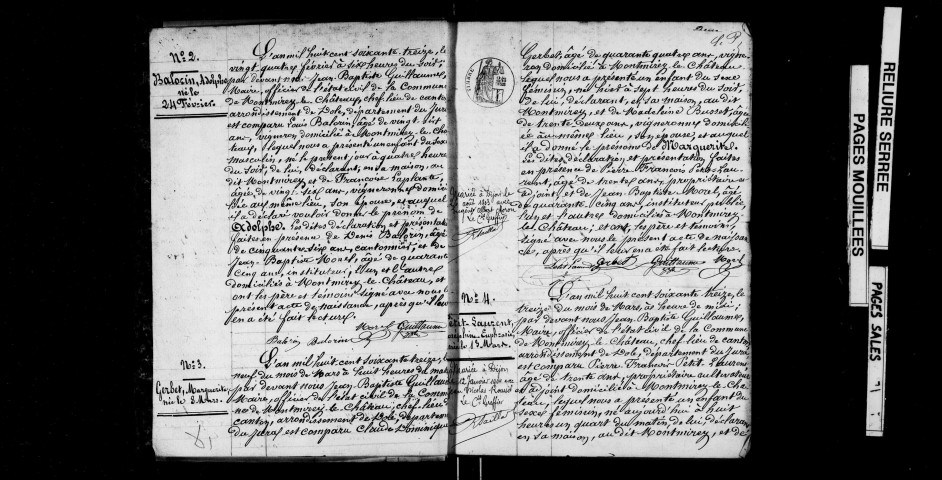 N° 2.
Balorin, Adolphe
né le
24 Février.
L'an mil huit cent soixante treize, le
vingt quatre février à six heures du soir,
par devant nous Jean Baptiste Guillaume
Maire, officier de l'état civil de la Commune
de Montmirey le Château, chef lieu de canton
arrondissement de Dole, département du Jura
est comparu Louis Balorin, âgé de vingt huit
ans, vigneron domicilié à Montmirey le Châ-
teau, lequel nous a présenté un enfant du sexe
masculin, né le present jour à quatre heures
du soir, de lui, déclarant, en sa maison, au
dit Montmirey, et de Françoise
âgée de vingt six ans, vigneronne domici-
liée au même lieu, son épouse, et auquel
il a déclaré vouloir donner le prénom de
Adolphe. Les dites déclaration et présentation
faites en présence de Denis Balorin, âgé
de cinquante six ans, cantonnier, et de
Jean Baptiste Morel, âgé de quarante
cinq ans, instituteur, l'un et l'autre
domiciliés à Montmirey le Château, et
ont les père et témoins signé avec nous le
présent acte de naissance, après qu'il leur
en a été fait lecture.
Morel Guillaume
Balorin Balorin
N° 3.
Gerbet, Marguerite
née le 8 Mars.
L'an mil huit cent soixante treize, le
neuf du mois de Mars à huit heures du matin
par devant nous Jean Baptiste Guillaume
Maire, officier de l'état civil de la Commu-
ne de Montmirey le Château, chef lieu de
canton, arrondissement de Dole, département
du Jura, est comparu Claude Dominique
Gerbet, âgé de quarante quatre ans, vigne-
ron domicilié à Montmirey le Château
lequel nous a présenté un enfant du sexe
féminin, né hier à sept heures du soir,
de lui, déclarant, en sa maison, au dit
Montmirey, et de Madeleine Busset, âgée
de trente deux ans, vigneronne domicili-
ée au même lieu, son épouse, et auquel
il a donné le prénom de Marguerite.
Les dites déclaration et présentation faites
en présence de Pierre François Petit Lau-
rent, âgé de trente ans, propriétaire
adjoint, et de Jean Baptiste Morel, âgé
de quarante cinq ans, instituteur public,
l'un et l'autre domiciliés à Montmirey
le Château, et ont, les père et témoins,
signé avec nous le présent acte de naissan-
ce, après qu'il leur en a été fait lecture.
Gerbet Guillaume Morel
N° 4.
Petit Laurent,
Euphrasie
née le 13 Mars.
L'an mil huit cent soixante treize, le
treize du mois de Mars, à heure de midi,
par devant nous Jean Baptiste Guillaume
Maire, officier de l'état civil de la Commune
de Montmirey le Château, chef lieu de canton
arrondissement de Dole, département du Jura
est comparu Pierre François Petit Laurent
âgé de trente ans, propriétaire cultivateur
et adjoint domicilié à Montmirey le Châ-
teau, lequel nous a présenté un enfant du
sexe féminin, né aujourd'hui à huit
heures un quart du matin, de lui, déclarant
en sa maison, au dit Montmirey, et de
RELIURE SERREE
PAGES MOUILLEES
PAGES SALES